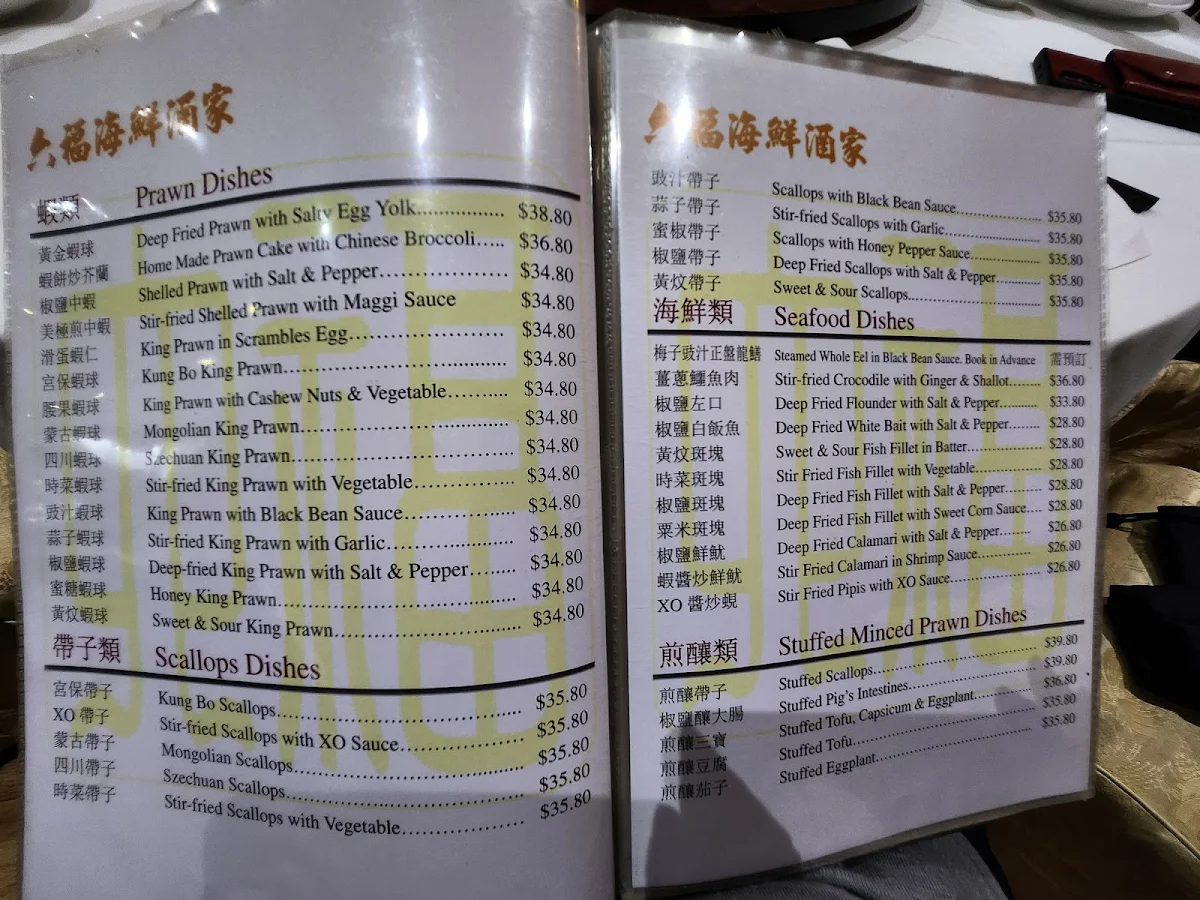 六福海鮮酒家
蝦類 Prawn Dishes
黃金蝦球 Deep Fried Prawn with Salty Egg Yolk................ $38.80
蝦餅炒芥蘭 Home Made Prawn Cake with Chinese Broccoli..... $36.80
椒鹽中蝦 Shelled Prawn with Salt & Pepper........................ $34.80
美極煎中蝦 Stir-fried Shelled Prawn with Maggi Sauce $34.80
滑蛋蝦仁 King Prawn in Scrambles Egg............................. $34.80
宮保蝦球 Kung Bo King Prawn......................................... $34.80
腰果蝦球 King Prawn with Cashew Nuts & Vegetable......... $34.80
蒙古蝦球 Mongolian King Prawn...................................... $34.80
四川蝦球 Szechuan King Prawn........................................ $34.80
時菜蝦球 Stir-fried King Prawn with Vegetable.................. $34.80
豉汁蝦球 King Prawn with Black Bean Sauce.................... $34.80
蒜子蝦球 Stir-fried King Prawn with Garlic....................... $34.80
椒鹽蝦球 Deep-fried King Prawn with Salt & Pepper........ $34.80
蜜糖蝦球 Honey King Prawn............................................ $34.80
黃炆蝦球 Sweet & Sour King Prawn.................................. $34.80
帶子類 Scallops Dishes
宮保帶子 Kung Bo Scallops............................................. $35.80
XO 帶子 Stir-fried Scallops with XO Sauce..................... $35.80
蒙古帶子 Mongolian Scallops.......................................... $35.80
四川帶子 Szechuan Scallops............................................ $35.80
時菜帶子 Stir-fried Scallops with Vegetable...................... $35.80
六福海鮮酒家
豉汁帶子 Scallops with Black Bean Sauce...................... $35.80
蒜子帶子 Stir-fried Scallops with Garlic........................ $35.80
蜜椒帶子 Scallops with Honey Pepper Sauce.................. $35.80
椒鹽帶子 Deep Fried Scallops with Salt & Pepper............ $35.80
黃炆帶子 Sweet & Sour Scallops................................... $35.80
海鮮類 Seafood Dishes
梅子豉汁正盤龍鱔 Steamed Whole Eel in Black Bean Sauce. Book in Advance 需預訂
薑蔥鱷魚肉 Stir-fried Crocodile with Ginger & Shallot........ $36.80
椒鹽左口 Deep Fried Flounder with Salt & Pepper.......... $33.80
椒鹽白飯魚 Deep Fried White Bait with Salt & Pepper........ $28.80
黃炆斑塊 Sweet & Sour Fish Fillet in Batter.................. $28.80
時菜斑塊 Stir Fried Fish Fillet with Vegetable................ $28.80
椒鹽斑塊 Deep Fried Fish Fillet with Salt & Pepper......... $28.80
粟米斑塊 Deep Fried Fish Fillet with Sweet Corn Sauce.... $28.80
椒鹽鮮魷 Deep Fried Calamari with Salt & Pepper........ $26.80
蝦醬炒鮮魷 Stir Fried Calamari in Shrimp Sauce............. $26.80
XO 醬炒蜆 Stir Fried Pipis with XO Sauce....................... $26.80
煎釀類 Stuffed Minced Prawn Dishes
煎釀帶子 Stuffed Scallops......................................... $39.80
椒鹽釀大腸 Stuffed Pig's Intestines................................. $39.80
煎釀三寶 Stuffed Tofu, Capsicum & Eggplant.............. $36.80
煎釀豆腐 Stuffed Tofu............................................... $35.80
煎釀茄子 Stuffed Eggplant......................................... $35.80